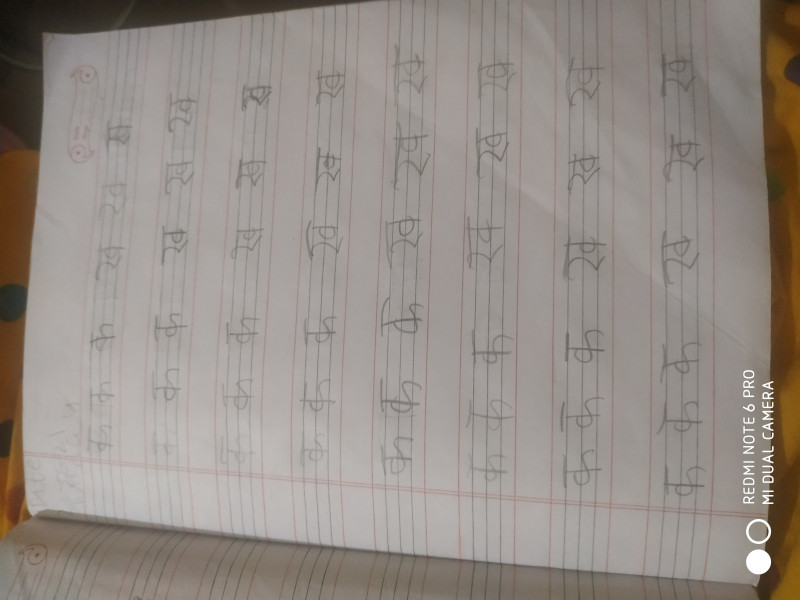 क क क ख ख ख
क क क ख ख ख
क क क ख ख ख
क क क ख ख ख
क क क ख ख ख
क क क ख ख ख
क क क ख ख ख
क क क ख ख ख
REDMI NOTE 6 PRO
MI DUAL CAMERA